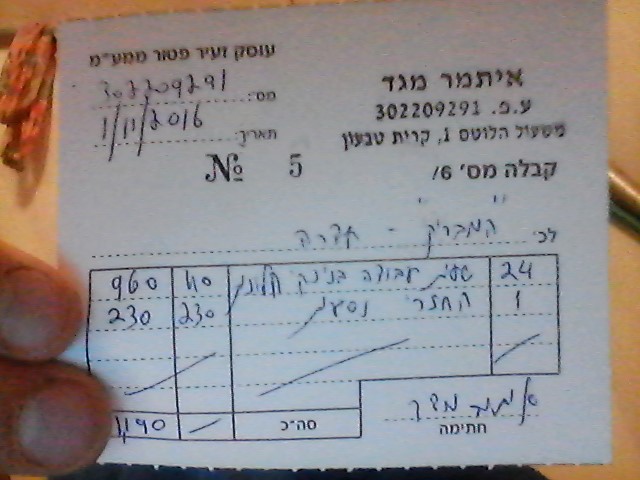 עוסק זעיר פטור ממע״מ
איתמר מגד
ע.פ. 302209291
משעול הלוטס 1, קרית טבעון
מס׳: 302209291
תאריך: 1/11/2016
קבלה מס׳ 6/
№ 5
לכ׳ "המבריק" -
24 שעות עבודה בניקוי חלונות 40 960
1 החזר נסיעות 230 230
סה״כ 1,190
איתמר מגד
חתימה